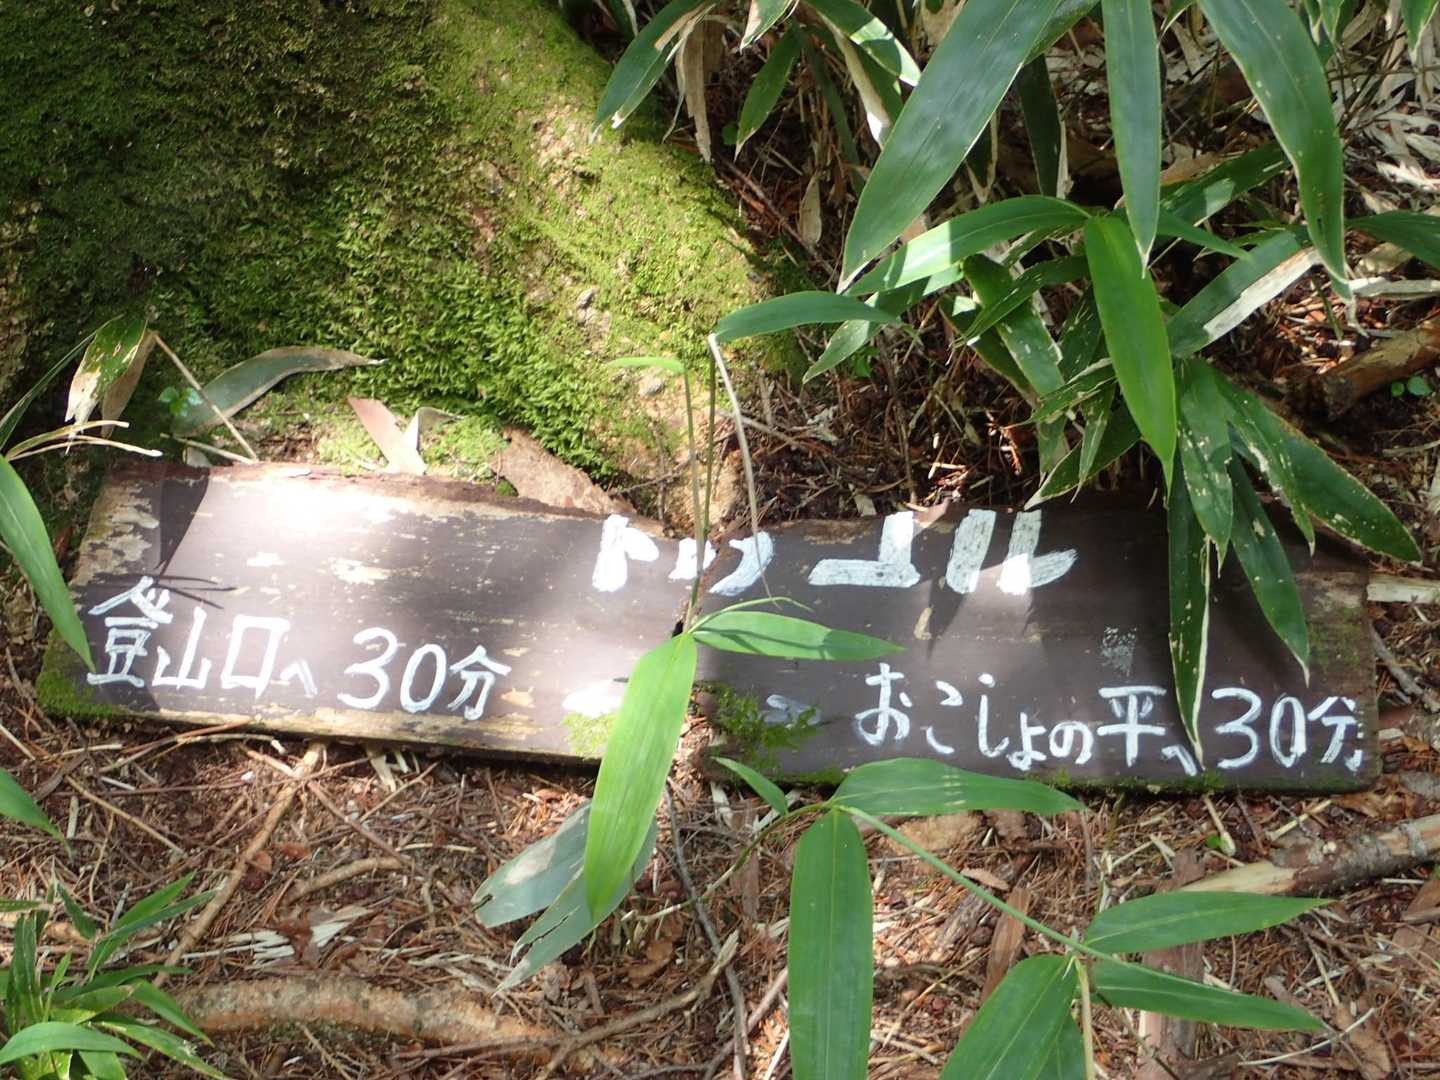 コル
登山口へ30分
おこしょの平へ30分